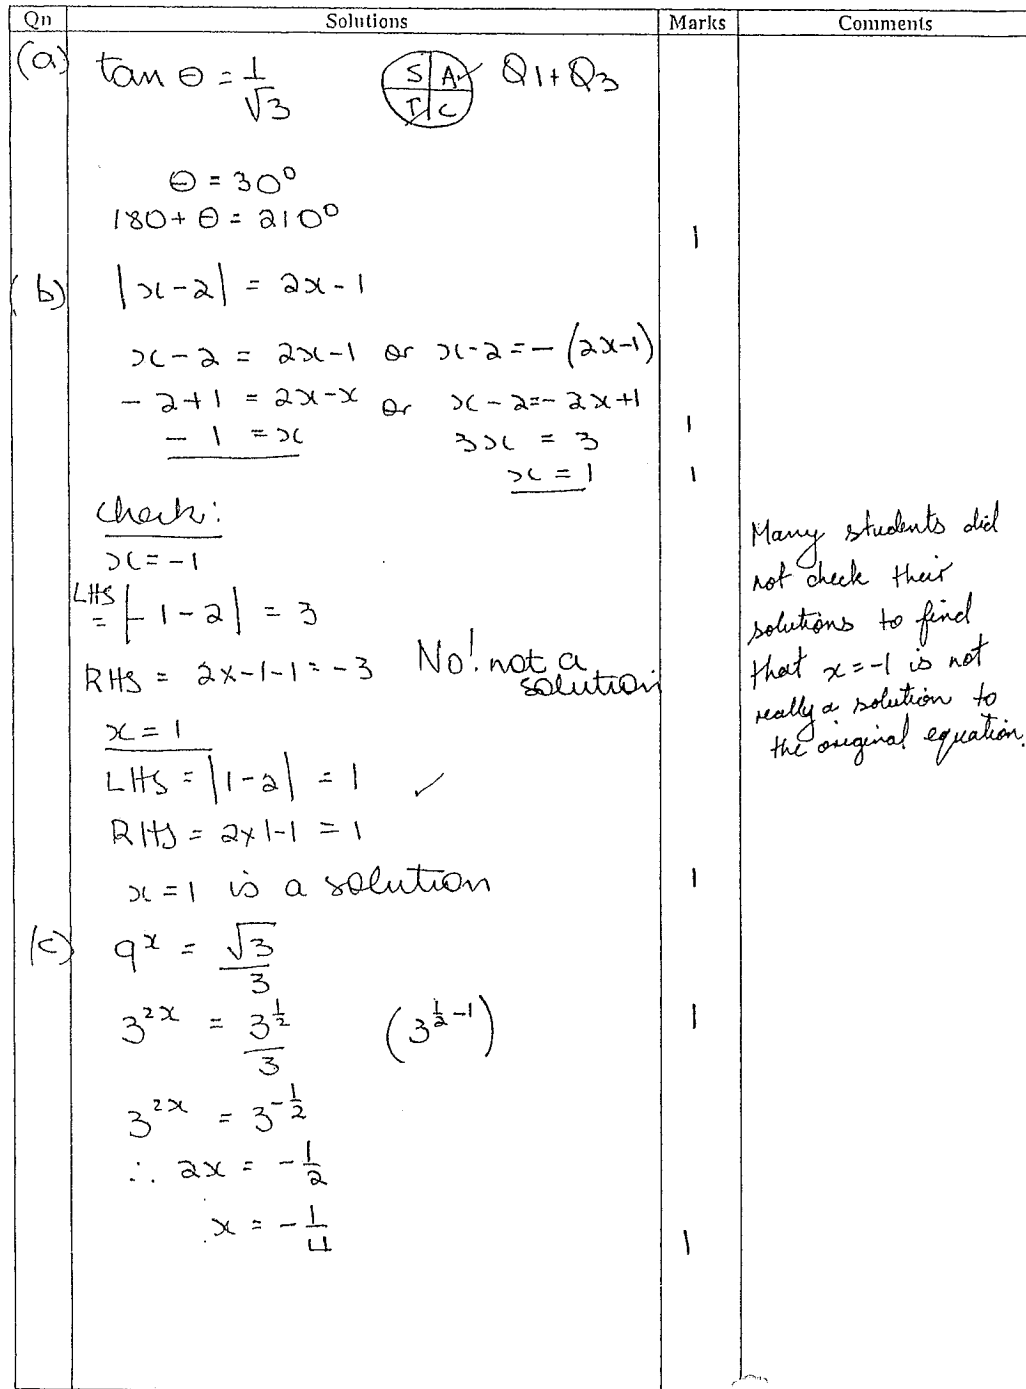 Qn Solutions Marks Comments
(a) tan θ = 1/√3 S A T C Q1 + Q3
θ = 30°
180 + θ = 210°
1
(b) |x-2| = 2x-1
x-2 = 2x-1 or x-2 = -(2x-1)
-2+1 = 2x-x or x-2 = -2x+1
-1 = x 3x = 3 1
x = 1 1
check:
x = -1
LHS = |-1-2| = 3
RHS = 2x-1-1 = -3 No! not a solution
x = 1
LHS = |1-2| = 1 ✓
RHS = 2x1-1 = 1
x = 1 is a solution 1
Many students did
not check their
solutions to find
that x = -1 is not
really a solution to
the original equation.
(c) 9^x = √3/3
3^{2x} = 3^{1/2}/3 (3^{1/2 -1}) 1
3^{2x} = 3^{-1/2}
∴ 2x = -1/2
x = -1/4 1